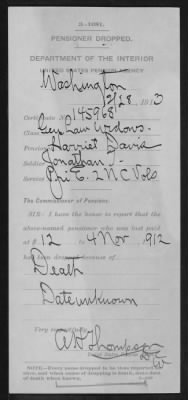 3-1081.
PENSIONER DROPPED.
DEPARTMENT OF THE INTERIOR
UNITED STATES PENSION AGENCY
Washington
2/28 1913
Certificate 145968
Class Gen Law Widows.
Pensioner Harriet Davis
Soldier Jonathan
Service Pri E. 2 N C Vols
The Commissioner of Pensions.
SIR: I have the honor to report that the
above-named pensioner who was last paid
at $ 12 4 Nov, 1912
has been dropped because of
Death
Date unknown
Very
A H Thompson
NOTE.—Every name dropped to be thus reported at
once, and when cause of dropping is death, state date
of death when known.